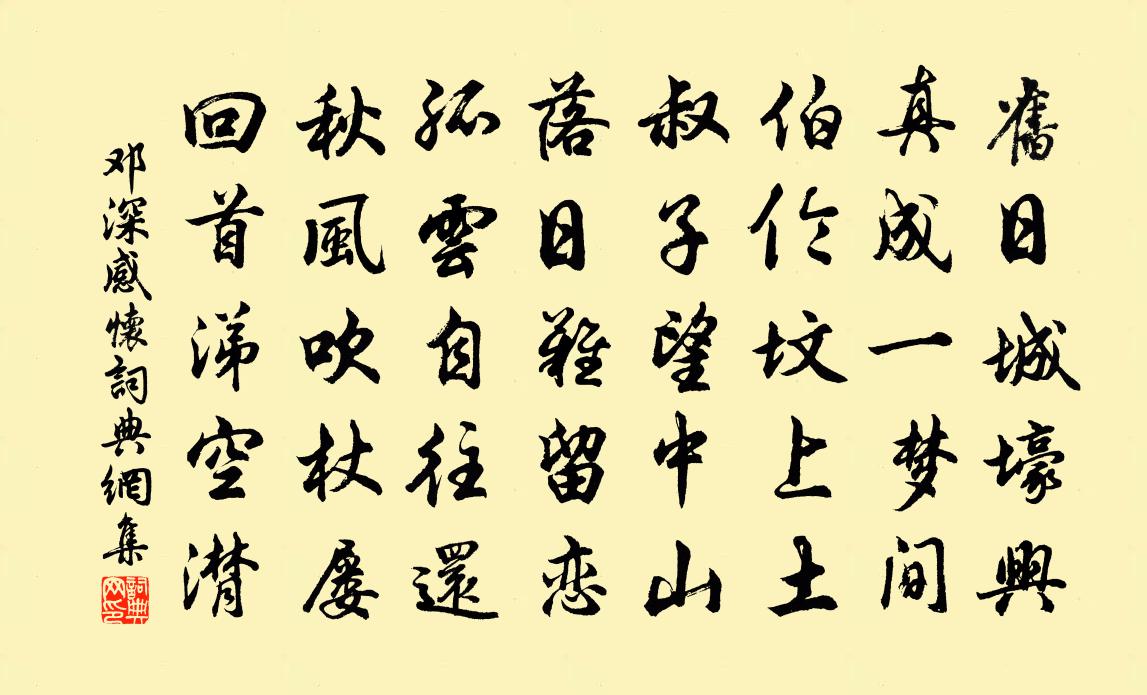 舊日城壕興
真成一梦间
伯伶坟上土
叔子望中山
落日難留恋
孤雲自往還
秋風吹杖屡
回首涕空潸
邓深感懷詞典網集
詞典网印